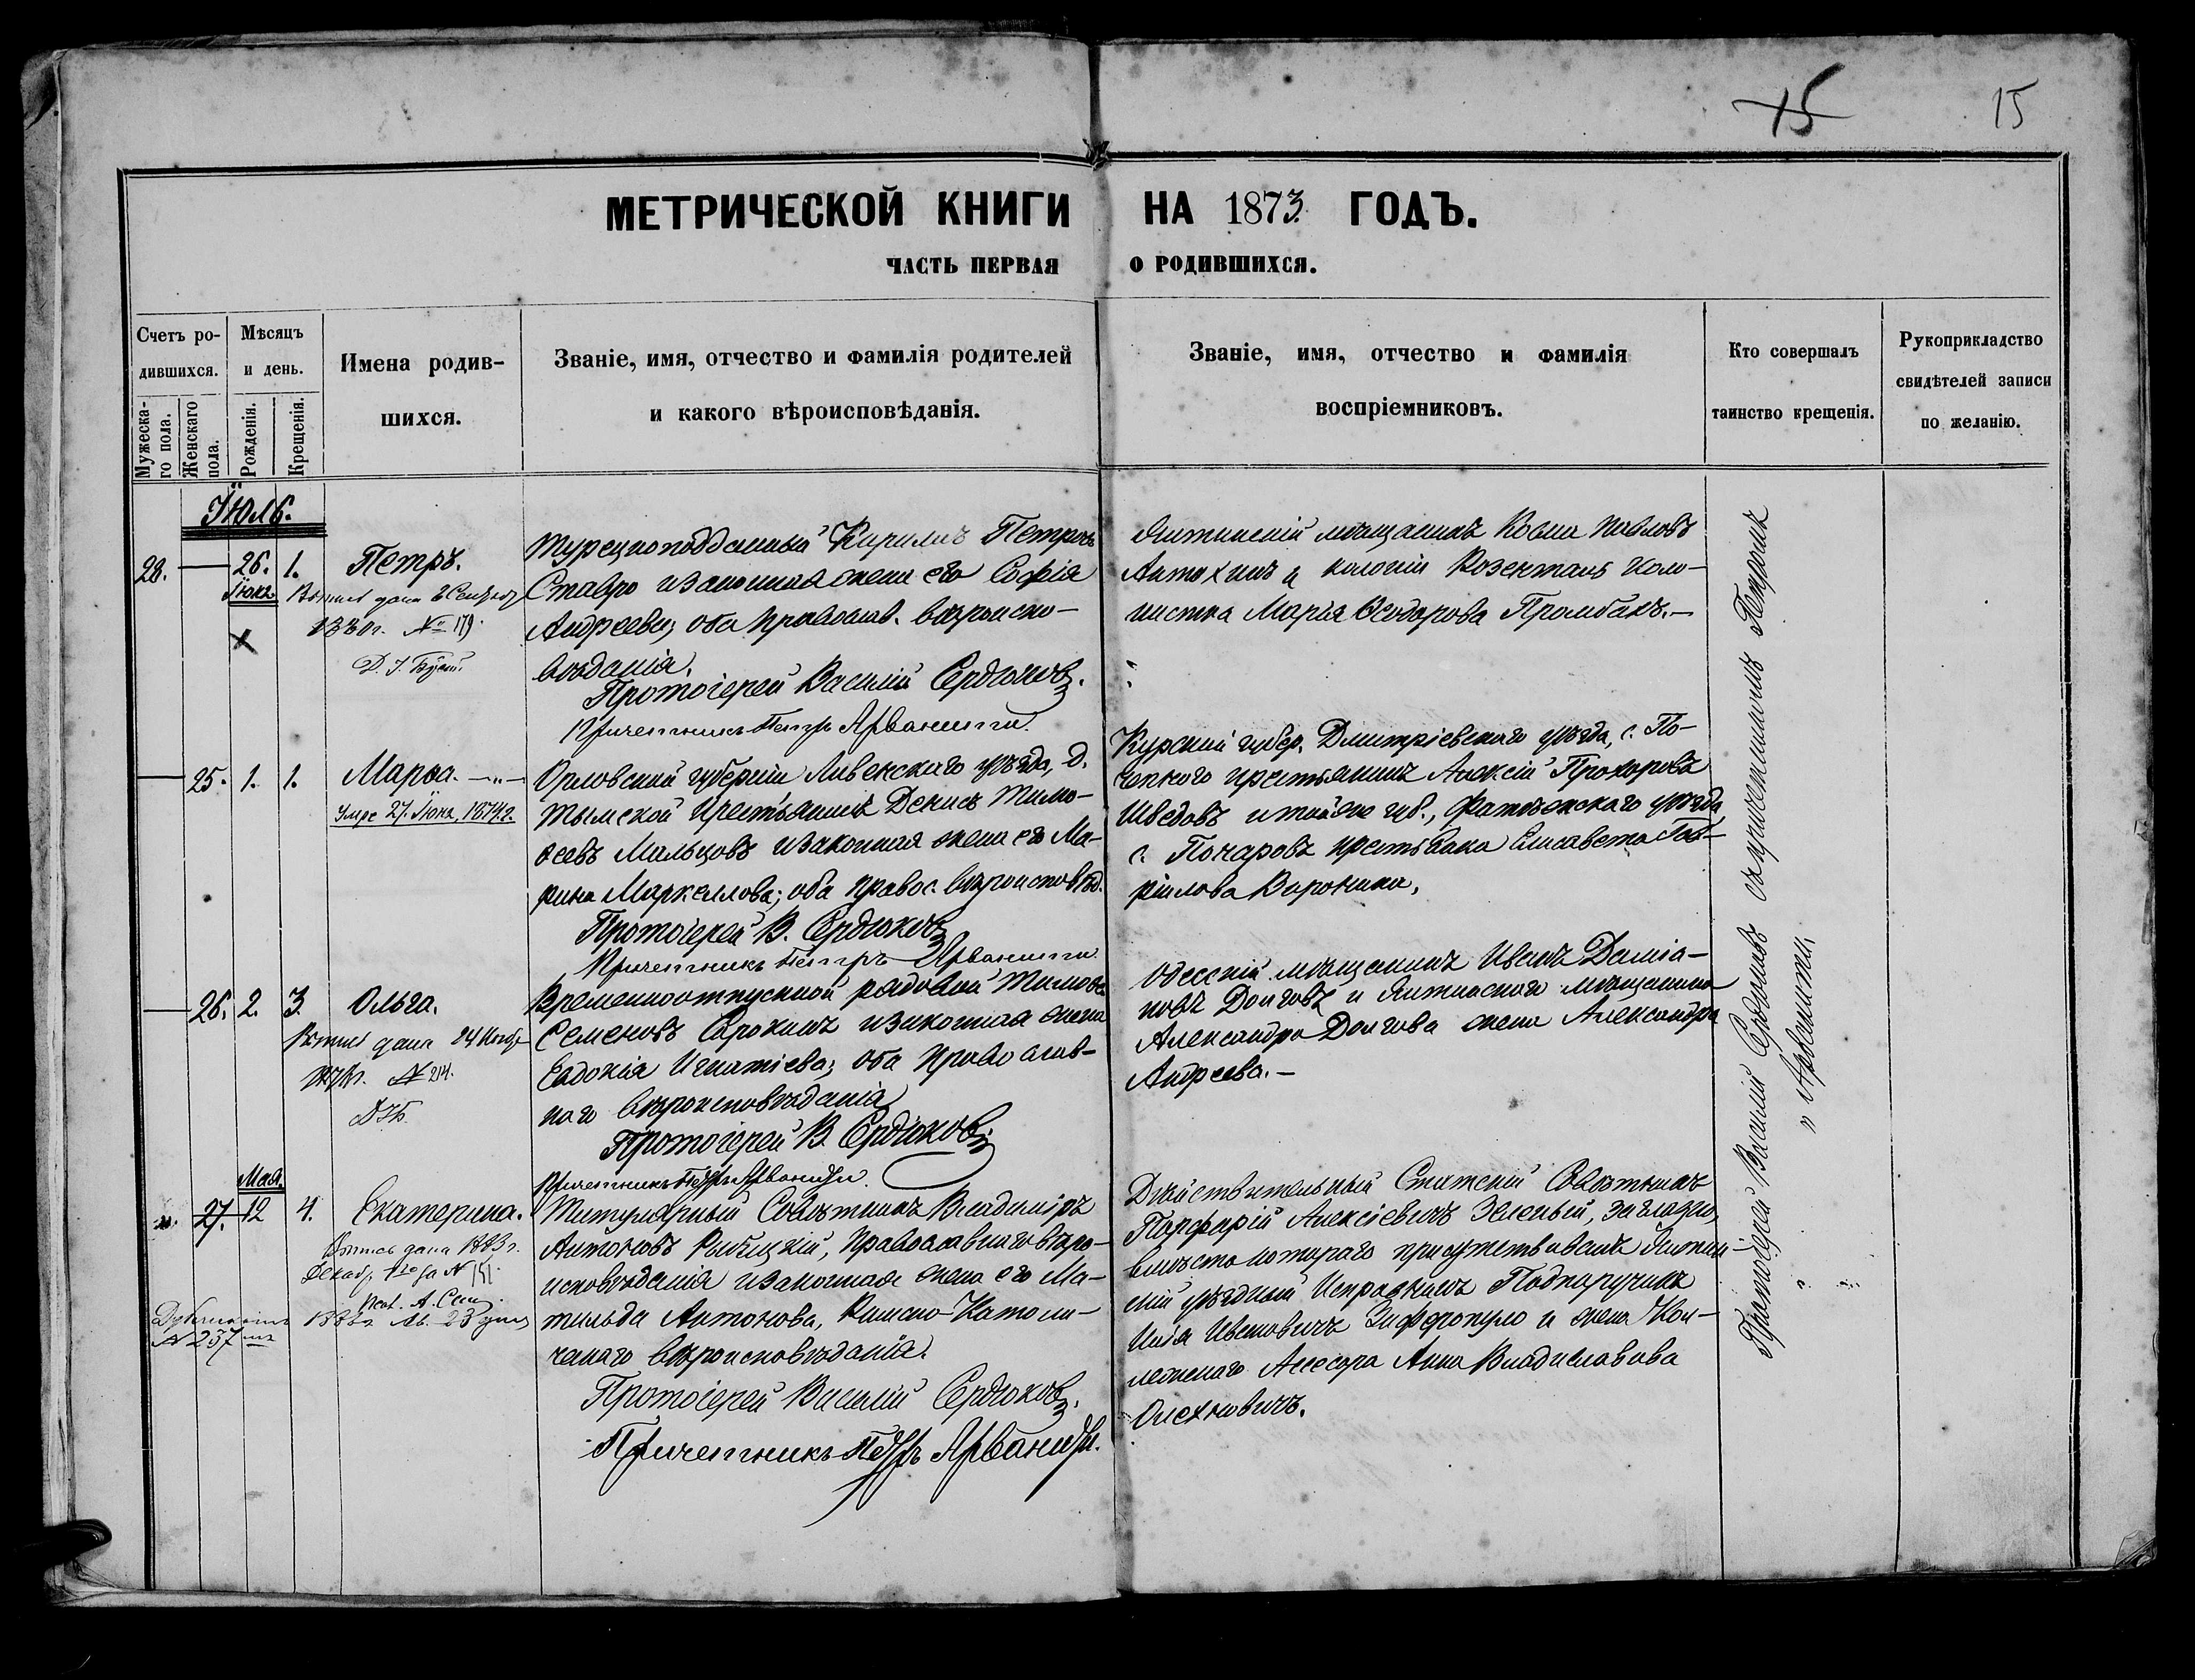 15 15
МЕТРИЧЕСКОЙ КНИГИ НА 1873 ГОДЪ.
ЧАСТЬ ПЕРВАЯ О РОДИВШИХСЯ.
Счетъ ро-
дившихся.
Мужеска-
го пола.
Женскаго
пола.
Мѣсяцъ
и день.
Рожденія.
Крещенія.
Имена родив-
шихся.
Званіе, имя, отчество и фамилія родителей
и какого вѣроисповѣданія.
Званіе, имя, отчество и фамилія
воспріемниковъ.
Кто совершалъ
таинство крещенія.
Рукоприкладство
свидѣтелей записи
по желанію.
Іюль.
28. — 26. 1. Петръ.
Іюня
Выпись дана 2
1880г. № 179.
Турецкоподданный Кирилъ Петровъ
Ставро и законная жена его Софія
Андреева; оба православ. вѣроиспо-
вѣданія.
Протоіерей Василій Сердюковъ.
Причетникъ Петръ Арванити.
Ялтинскій мѣщанинъ Козма Павловъ
и колоніи Розенталь коло-
нистка Марія Ѳеодорова
— 25. 1. 1. Марѳа. —„—
Умре 27. Іюня, 1874 г.
Орловской губерніи Ливенскаго уѣзда, д.
Тымской крестьянинъ Денисъ Тимо-
ѳеевъ Мальцовъ и законная жена его Ма-
рина Маркеллова; оба правос. вѣроисповѣд.
Протоіерей В. Сердюковъ
Причетникъ Петръ Арванити
Курской губер. Дмитріевскаго уѣзда, с. По-
крестьянинъ Алексій Прохоровъ
Шведовъ и той же губ., Фатежскаго уѣзда,
с. крестьянка Елисавета Гав-
ріилова Воронина,
— 26. 2. 3. Ольга.
Выпись дана 24 Ноября
№ 214.
Временноотпускной рядовой Тимоѳей
Семеновъ и законная жена
Евдокія Игнатіева; оба православ-
наго вѣроисповѣданія
Протоіерей В. Сердюковъ
Причетникъ Петръ Арванити.
Одесскій мѣщанинъ Иванъ Даміа-
новъ Долговъ и Ялтинскаго мѣщанина
Александра Долгова жена Александра
Андреева.—
Мая.
27. 12 4. Екатерина.
Выпись дана 1883 г.
Декабр. № 151.
№ 257
Титулярный Совѣтникъ Владиміръ
Антоновъ Рыбицкій, православнаго вѣро-
исповѣданія и законная жена его Ма-
тильда Антонова, Римско-Католи-
ческаго вѣроисповѣданія.
Протоіерей Василій Сердюковъ.
Причетникъ Петръ Арванити.
Дѣйствительный Статскій Совѣтникъ
Порфирій Алексіевичъ Зеленый, заглазно,
вмѣсто котораго присутствовалъ Ялтин-
скій уѣздный Исправникъ Подпоручикъ
Илія Ивановичъ Зафиропуло и жена Кол-
лежскаго Ассесора Анна Владиславова
Олехновичъ.
Протоіерей Василій Сердюковъ съ причетникомъ Петромъ
„ Арванити.